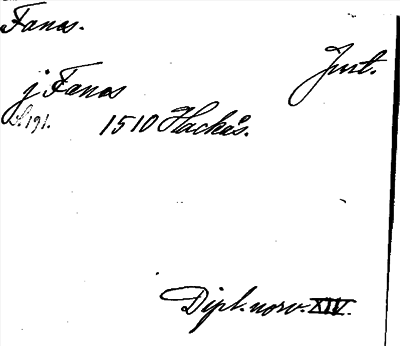 Fanos.
Jmt.
j Fanos
S. 191. 1510 Hackås.
Dipl. norv. XIV.